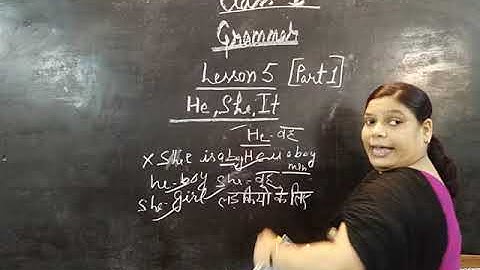 Class-
Grammar
Lesson 5 [Part 1]
He, She, It
He - वह
X She is a boy He is a boy
man
he - boy she - वह
she - girl लड़कियों के लिए